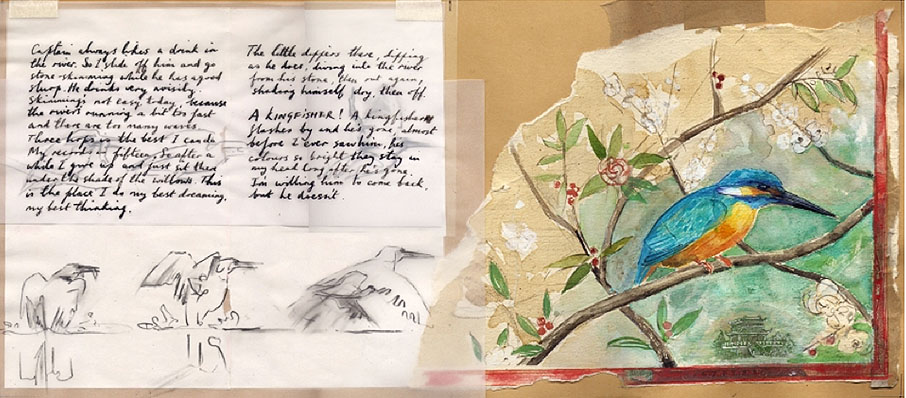 Captain always likes a drink in
the river. So I slide off him and go
stone-skimming while he has a good
slurp. He drinks very noisily.
Skimming's not easy today, because
the river's running a bit too fast
and there are too many waves.
Three hops is the best I can do.
My record is fifteen. So after a
while I give up and just sit there
under the shade of the willows. This
is the place I do my best dreaming,
my best thinking.
The little dippers there, dipping
as he does, diving into the river
from his stone, then out again,
shaking himself dry, then off.
A KINGFISHER! A kingfisher
flashes by and he's gone, almost
before I ever saw him, his
colours so bright they stay in
my head long after he's gone.
I'm willing him to come back,
but he doesn't.